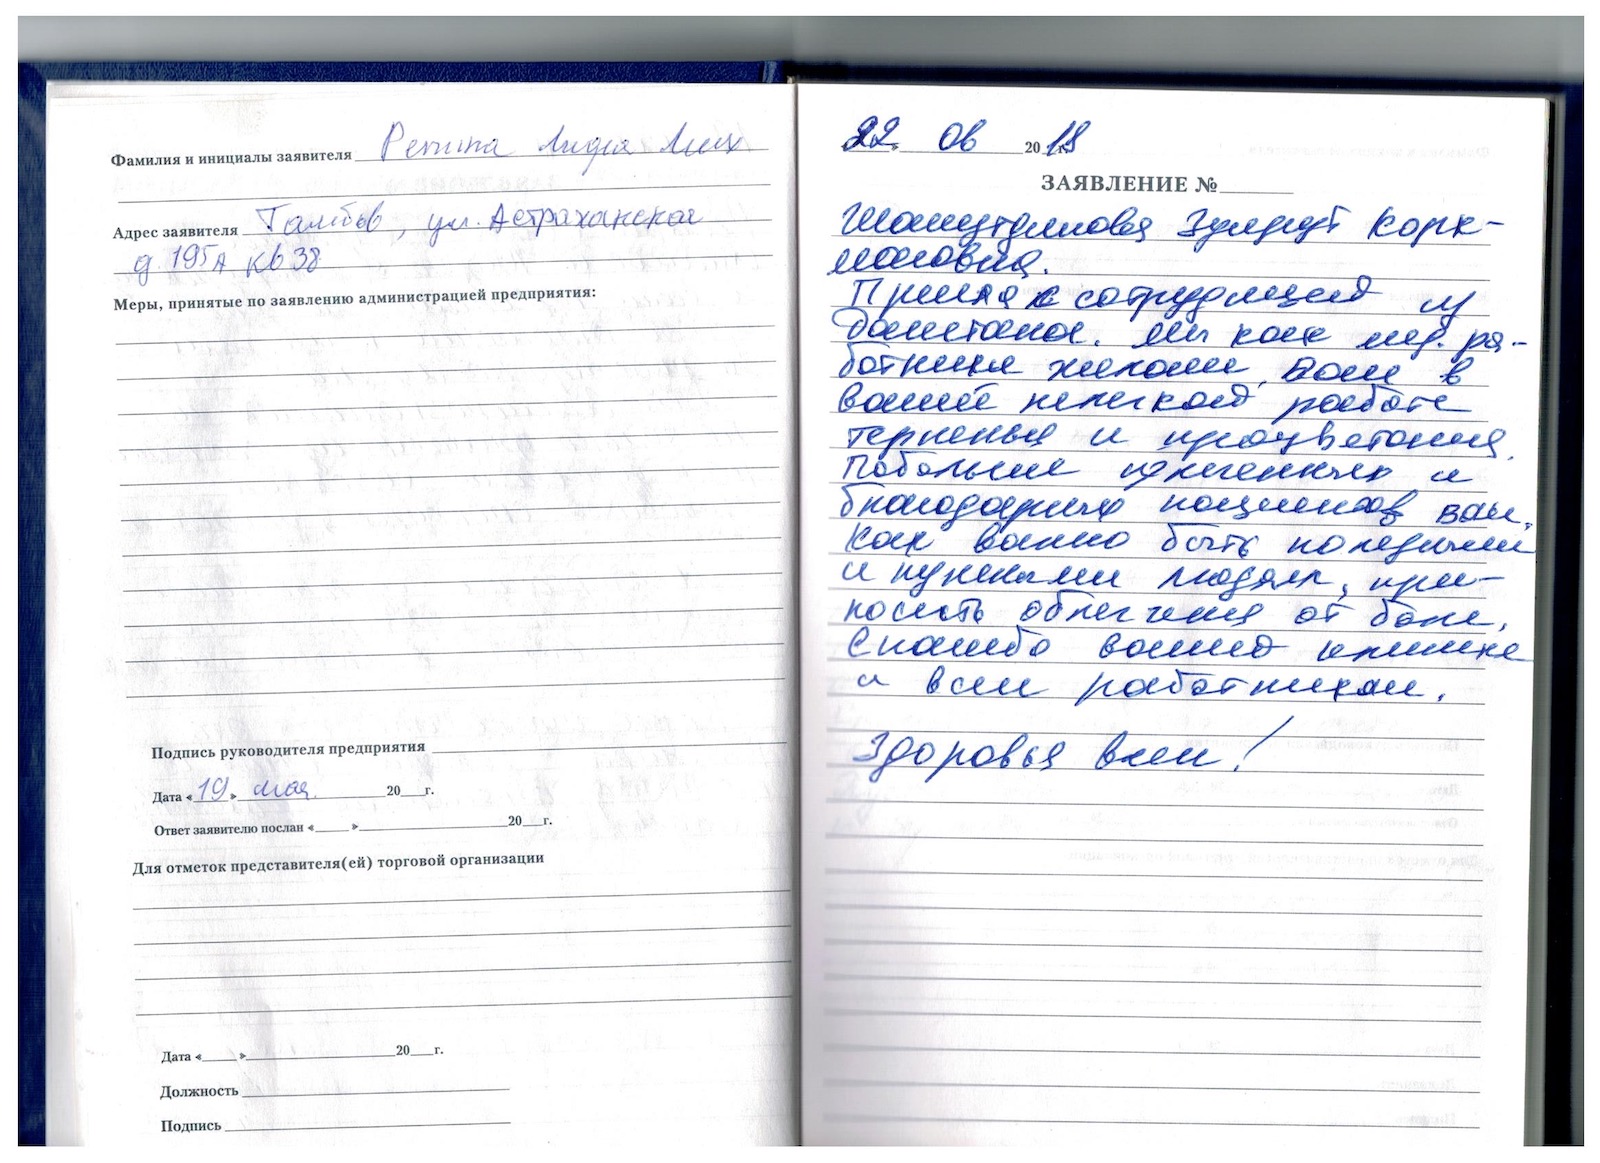 Фамилия и инициалы заявителя Репина Лидия
Адрес заявителя Тамбов, ул. Астраханская
д. 195А кв 38
Меры, принятые по заявлению администрацией предприятия:
Подпись руководителя предприятия
Дата «19» мая 20 г.
Ответ заявителю послан « » 20 г.
Для отметок представителя(ей) торговой организации
Дата « » 20 г.
Должность
Подпись
22 06 2018
ЗАЯВЛЕНИЕ №
Корк-
масовна.
Пришла с сотрудницей из
Дагестана. Мы как мед. ра-
ботники желаем Вам в
вашей нелегкой работе
терпенья и процветания.
Побольше излеченных и
благодарных пациентов вам.
Как важно быть полезными
и нужными людям, при-
носить облегчения от боли.
Спасибо вашей клинике
и всем работникам.
Здоровья всем!